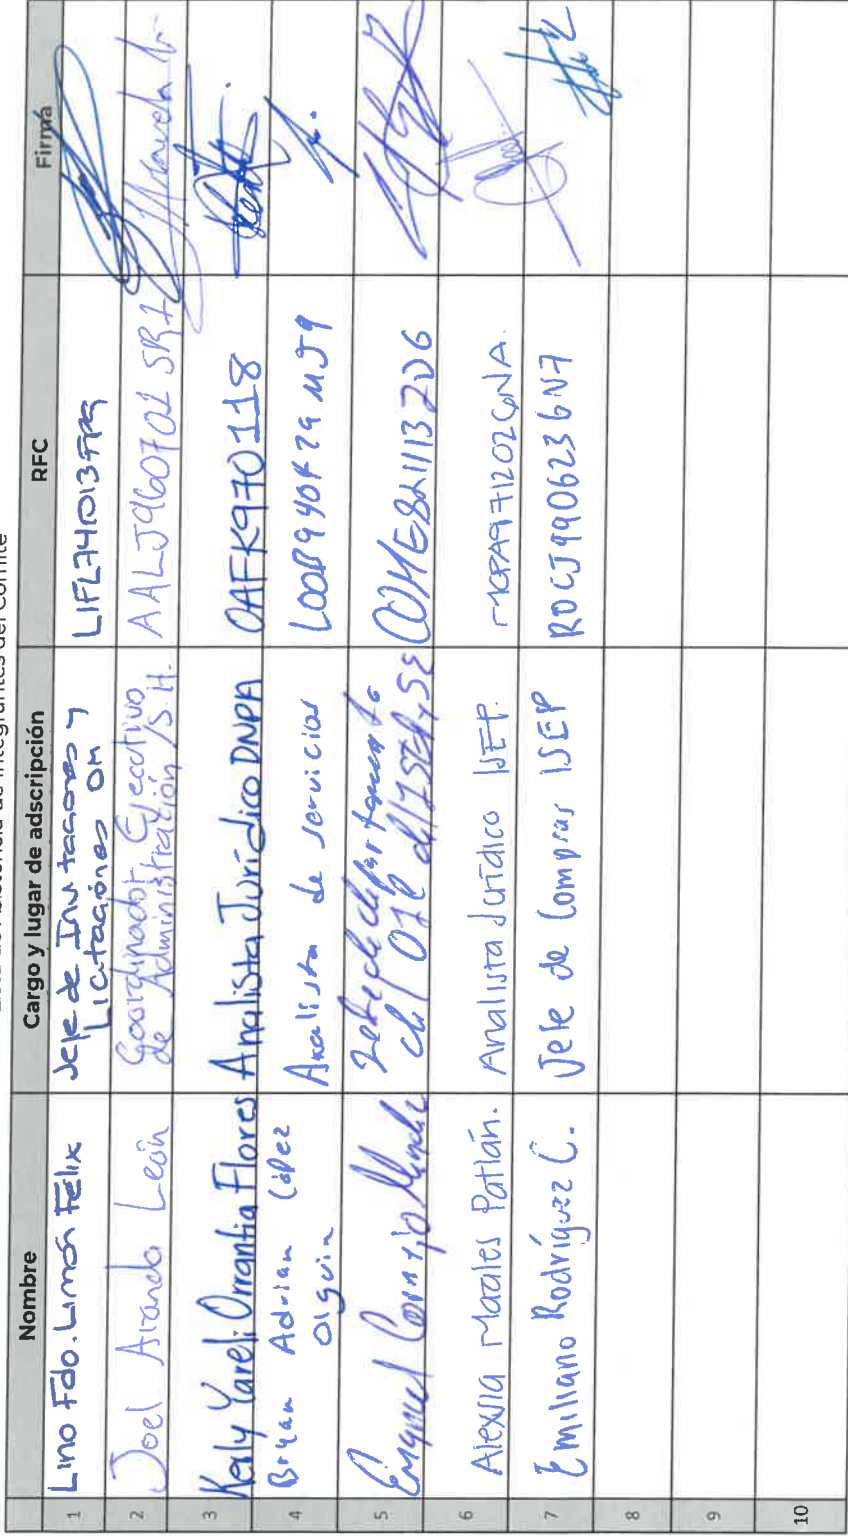 Lista de Asistencia de Integrantes del Comité
Nombre Cargo y lugar de adscripción RFC Firma
1 Lino Fdo. Limón Félix Jefe de Invitaciones y Licitaciones OM
2 Joel Aranda León Coordinador Ejecutivo de Administración / S.H. AALJ960702 SR7
3 Kerly Yareli Orrantia Flores Analista Jurídico DNPA OAFK970118
4 Bryan Adrian López Olguin Analista de servicios
5 del OIC del ISEP y SE
6 Alexia Morales Patlán. Analista Jurídico ISEP. MOPA971202GNA.
7 Emiliano Rodríguez C. Jefe de Compras ISEP ROCJ9906236N7
8
9
10